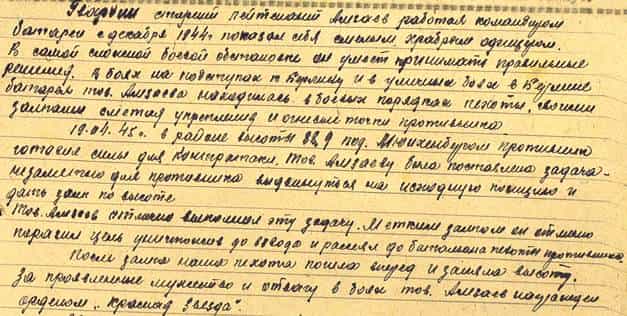 Гвардии старший лейтенант Алгаев работая командиром
батареи с декабря 1944г показал себя смелым храбрым офицером.
В самой сложной боевой обстановке он умеет принимать правильные
решения. В боях на подступах к Берлину и в уличных боях в Берлине
батарея тов. Алгаева находилась в боевых порядках пехоты, своими
залпами сметая укрепления и огневые точки противника
19.04.45г. в районе высоты 88,9 под Мюнхенбергом противник
готовил силы для контратаки. Тов. Алгаеву была поставлена задача-
незаметно для противника выдвинуться на исходную позицию и
дать залп по высоте
Тов. Алгаев отлично выполнил эту задачу. Метким залпом он отлично
поразил цель уничтожив до взвода и рассеял до батальона пехоты противника.
После залпа наша пехота пошла вперед и заняла высоту.
За проявленные мужество и отвагу в боях тов. Алгаев награжден
орденом „Красная Звезда".